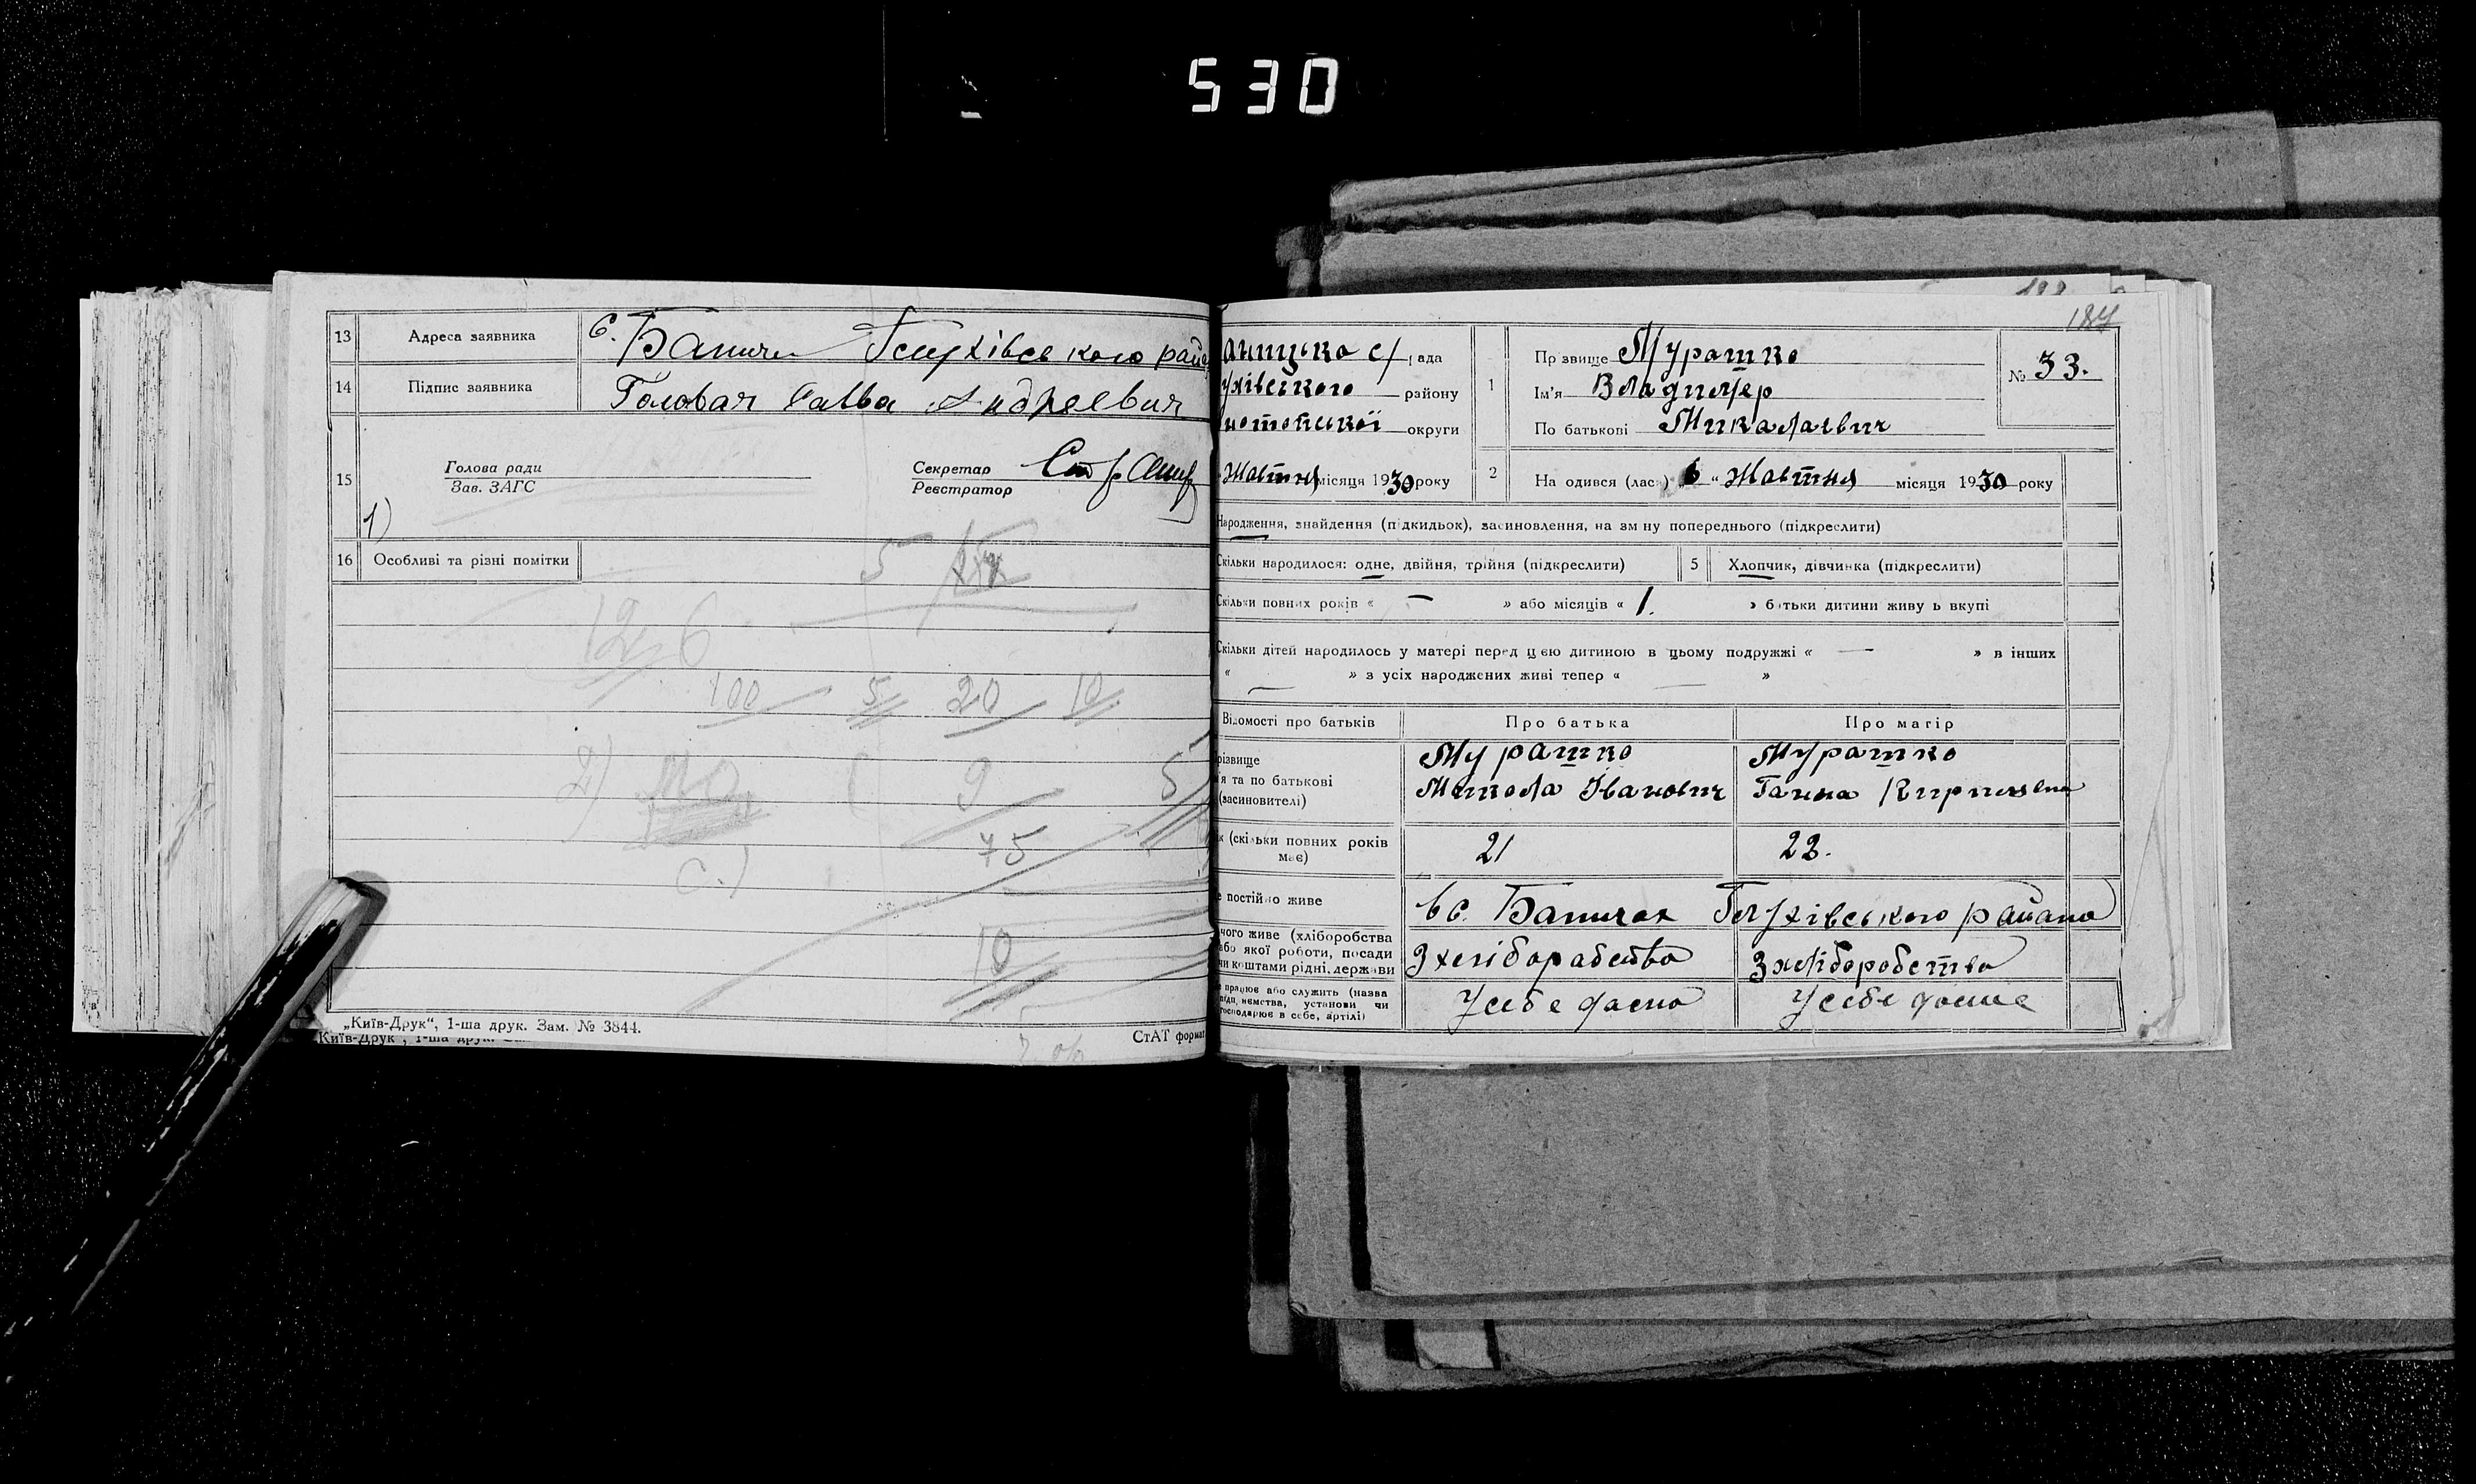 530
13 Адреса заявника с. Баничи Глухівського райо
14 Підпис заявника Головач Савва Андреевич
15 Голова ради
Зав. ЗАГС
Секретар
Реєстратор
1)
16 Особливі та різні помітки
5
12 6
100 5 20 10
2) 9 5
75
с.)
10
„Київ-Друк“, 1-ша друк. Зам. № 3844.
СтАТ формат
Київ-Друк , 1-ша друк.
188
187
аницька с/ рада
ухівського району
нотопської округи
Жовтня місяця 1930 року
1 Прізвище Мурашко
Ім'я Владимер
По батькові Миколаевич
№ 33.
2 На одився (лась) „6“ Жовтня місяця 1930 року
Народження, знайдення (підкидьок), засиновлення, на зм ну попереднього (підкреслити)
Скільки народилося: одне, двійня, трійня (підкреслити)
5 Хлопчик, дівчинка (підкреслити)
Скільки повних років « — » або місяців « 1. » батьки дитини живу ь вкупі
Скільки дітей народилось у матері перед цією дитиною в цьому подружжі « — » в інших
« — » з усіх народжених живі тепер « — »
Відомості про батьків
Про батька
Про матір
різвище
я та по батькові
(засиновителі)
Мурашко
Микола Іванович
Мурашко
Ганна Кирилівна
к (скільки повних років має)
21
22.
е постійно живе
в с. Баничах Глухівського района
чого живе (хліборобства
або якої роботи, посади
чи коштами рідні, держави
З хліборабства
З хліборобства
е працює або служить (назва
підп, иємства, установи чи
господарює в себе, артілі)
У себе дома
У себе дома